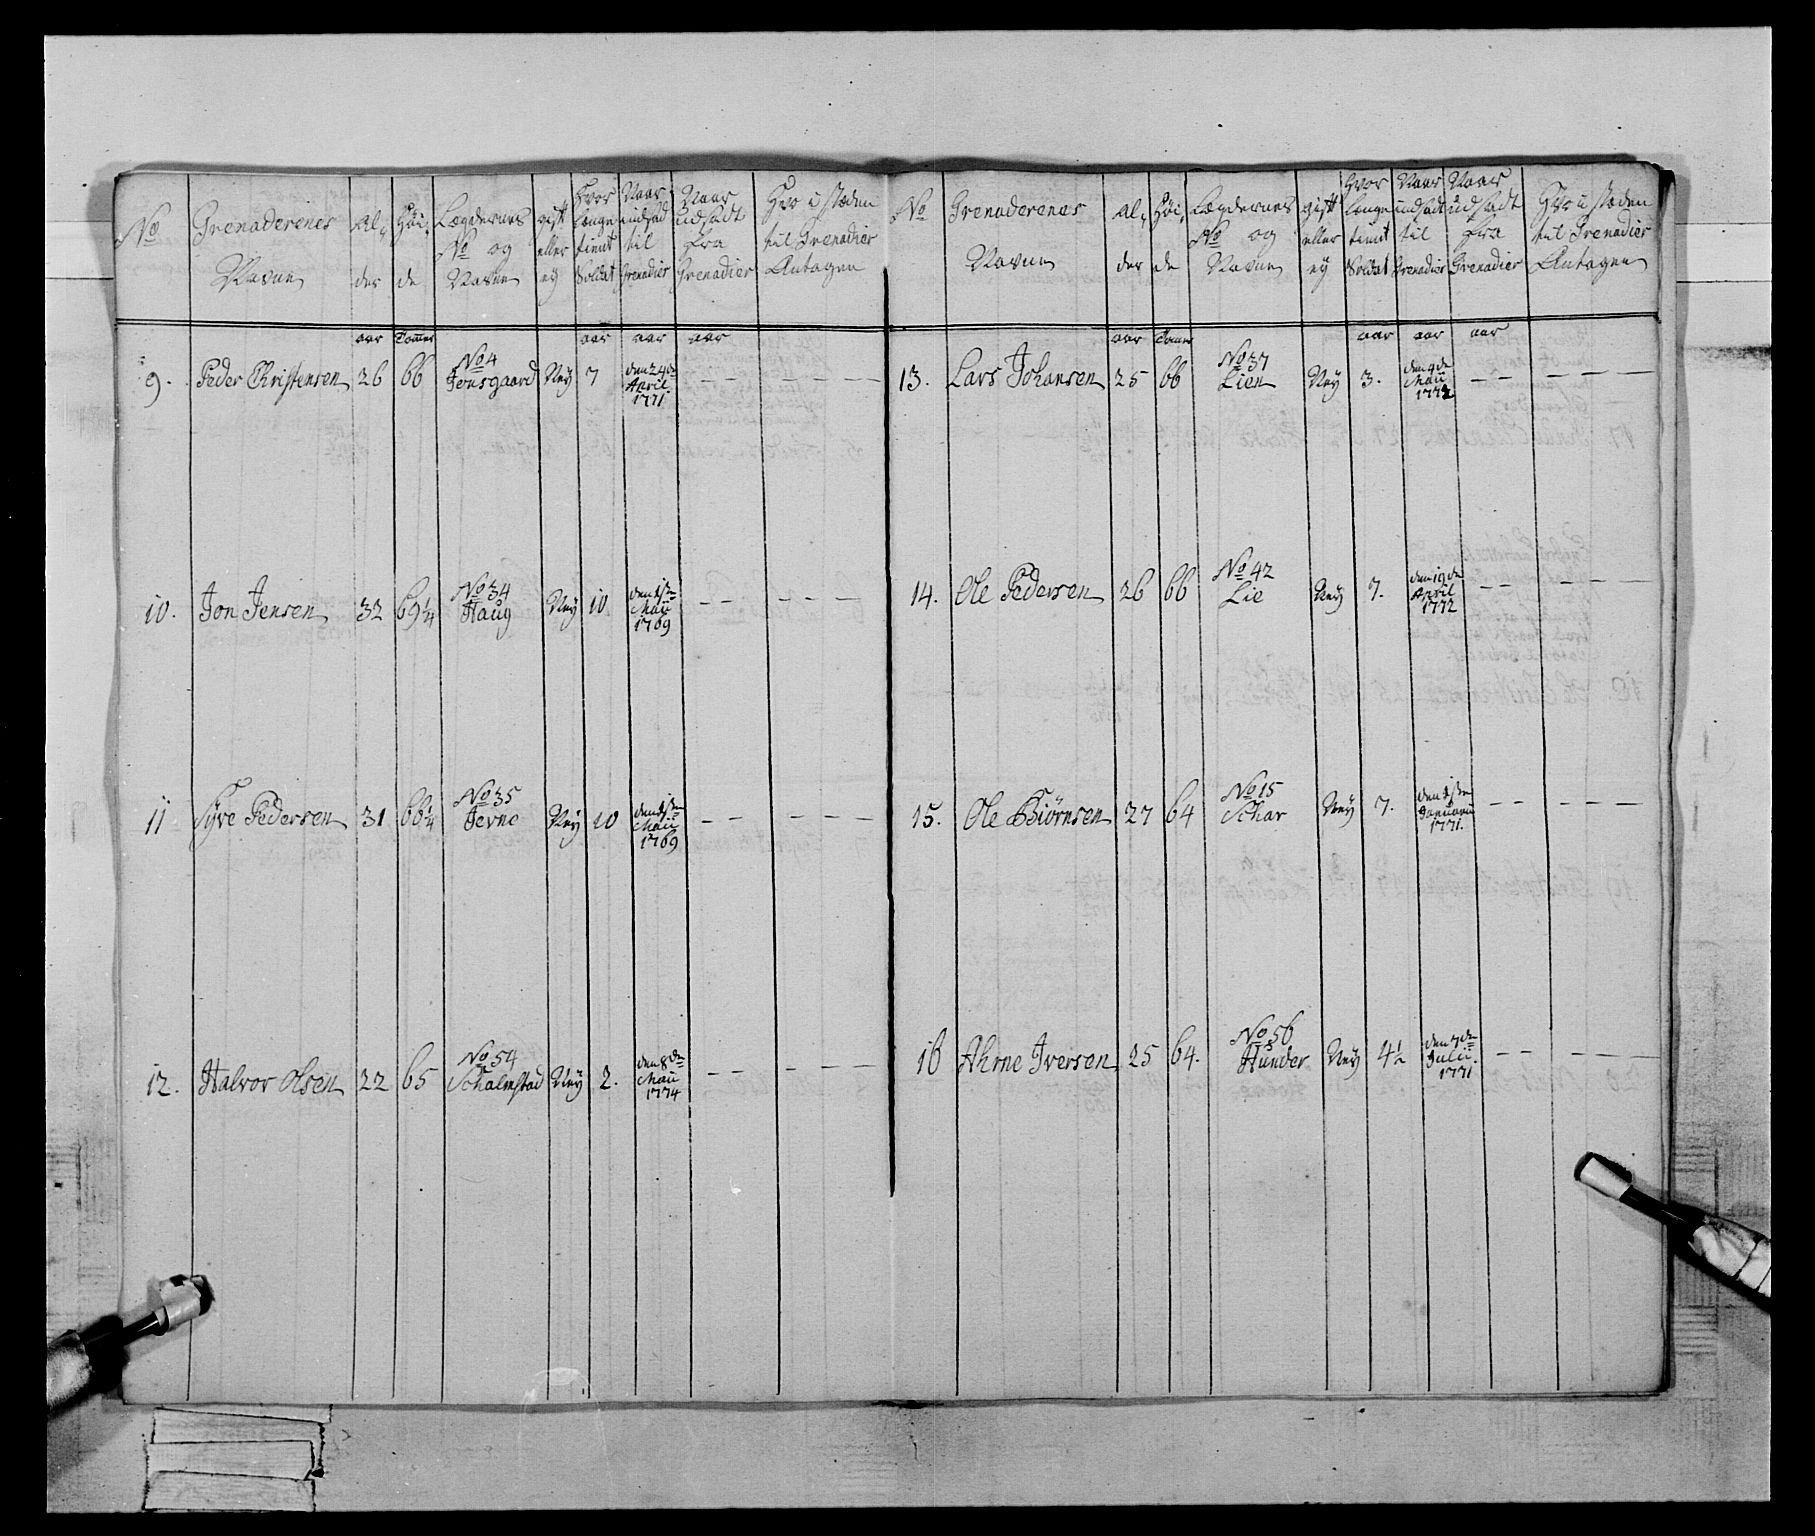 No Grenaderenes Navne Al, der Høi, de Lægdernes No og Navne gift eller ey Hvor længe tient Soldat Naar udsad til Grenadier Naar udsadt fra Grenadier Hvo i stæden til Grenadier Antagen
aar Tomer aar aar aar
9. Peder Christensen 26 66 No 4 Jonsgaard Ney 7 den 24de April 1771 — — — — —
10. Jon Jensen 32 69¼ No 34 Haug Ney 10. den 1ste Maii 1769 — — — — —
11 Syve Pedersen 31 66¼ No 35 Jevne Ney 10 den 1ste Maii 1769 — — — — —
12. Halvor Olsen 22 65 No 54 Schalmstad Ney 2. den 8de Maii 1774 — — — — —
No Grenaderenes Navne Al, der Høi, de Lægdernes No og Navne gift eller ey Hvor længe tient Soldat Naar udsadt til Grenadier Naar udsadt fra Grenadier Hvo i stæden til Grenadier Antagen
aar Tomer aar aar aar
13. Lars Johansen 25 66 No 37 Lien Ney 3. den 4de Maii 1772 — — — — —
14. Ole Pedersen 26 66 No 42 Lie Ney 7. den 19de April 1772 — — — — —
15. Ole Biørnsen 27 64 No 15 Schar Ney 7. den 1ste Januarii 1771. — — — — —
16 Ahrne Iversen 25 64. No 56 Hunder Ney 4½ den 7de Julii. 1771 — — — — —